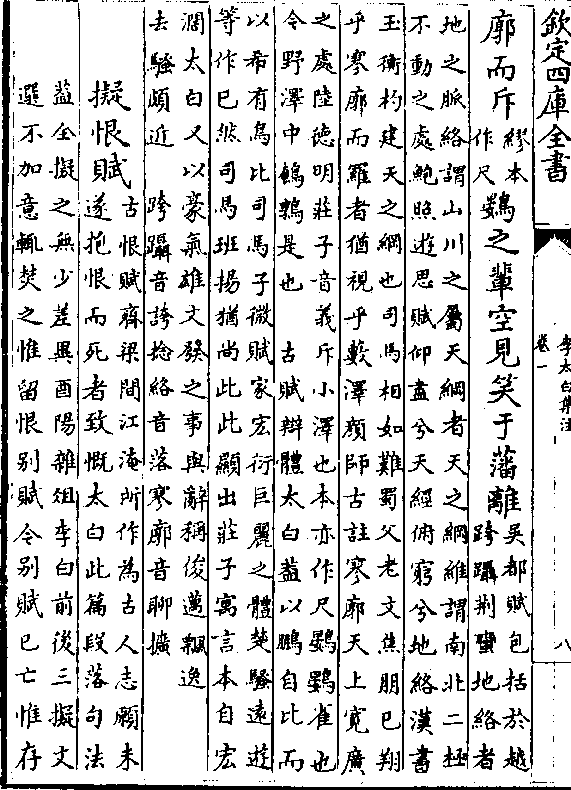 欽定四庫全書
李太白集注
卷一
八
廓而斥繆本作尺鷃之輩空見笑于藩離吳都賦包括於越跨躡荆蠻地絡者
地之脈絡謂山川之屬天綱者天之綱維謂南北二極
不動之處鮑照遊思賦仰盡兮天經俯窮兮地絡漢書
玉衡杓建天之綱也司馬相如難蜀父老文焦朋已翔
乎寥廓而羅者猶視乎藪澤顔師古註寥廓天上寛廣
之處陸德明莊子音義斥小澤也本亦作尺鷃鷃雀也
今野澤中鵪鶉是也　古賦辯體太白蓋以鵬自比而
以希有鳥比司馬子微賦家宏衍巨麗之體楚騷遠遊
等作已然司馬班揚猶尚此此顯出莊子寓言本自宏
濶太白又以豪氣雄文發之事與辭稱俊邁飄逸
去騷頗近　跨躡音誇捻絡音落寥廓音聊擴
擬恨賦古恨賦齊梁間江淹所作為古人志願未
遂抱恨而死者致慨太白此篇段落句法
蓋全擬之無少差異酉陽雜俎李白前後三擬文
選不加意輒焚之惟留恨别賦今别賦已亡惟存